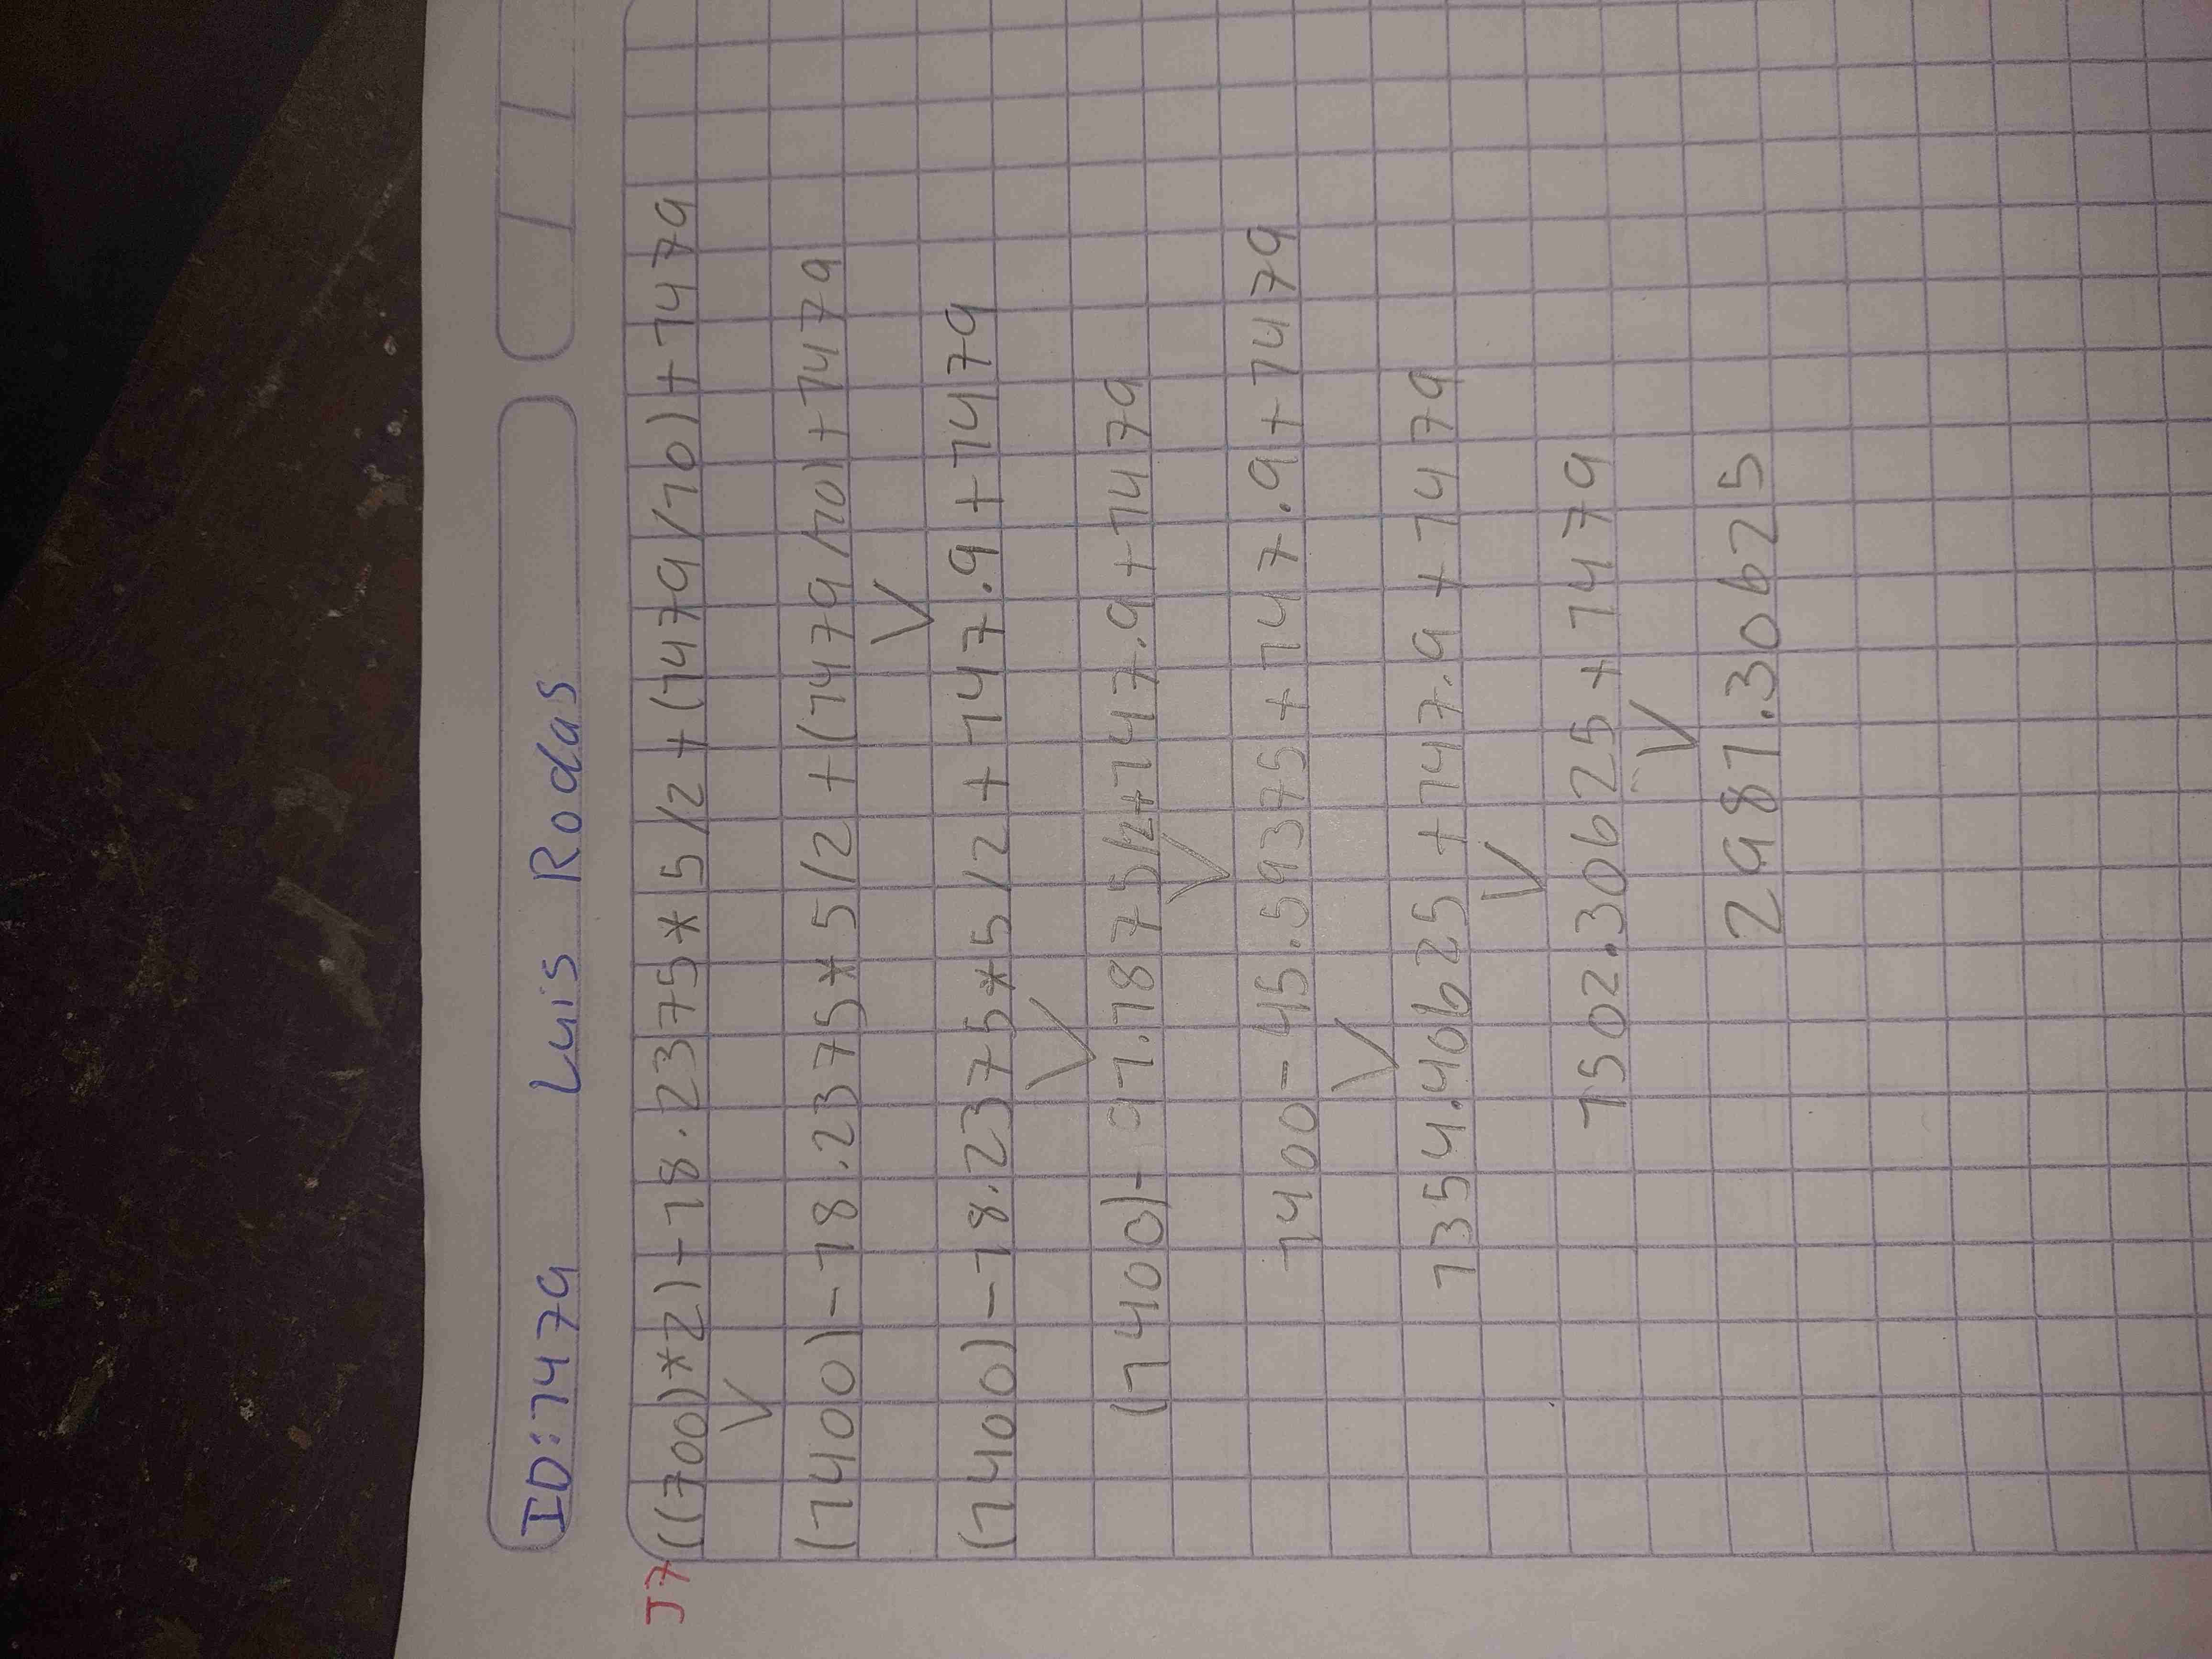 ID:1479 Luis Rodas
J7 ((700)*2)-18.2375*5/2+(1479/10)+1479
(1400)-18.2375*5/2+(1479/10)+1479
(1400)-18.2375*5/2+147.9+1479
(1400)-91.1875/2+147.9+1479
1400-45.59375+147.9+1479
1354.40625+147.9+1479
1502.30625+1479
2981.30625